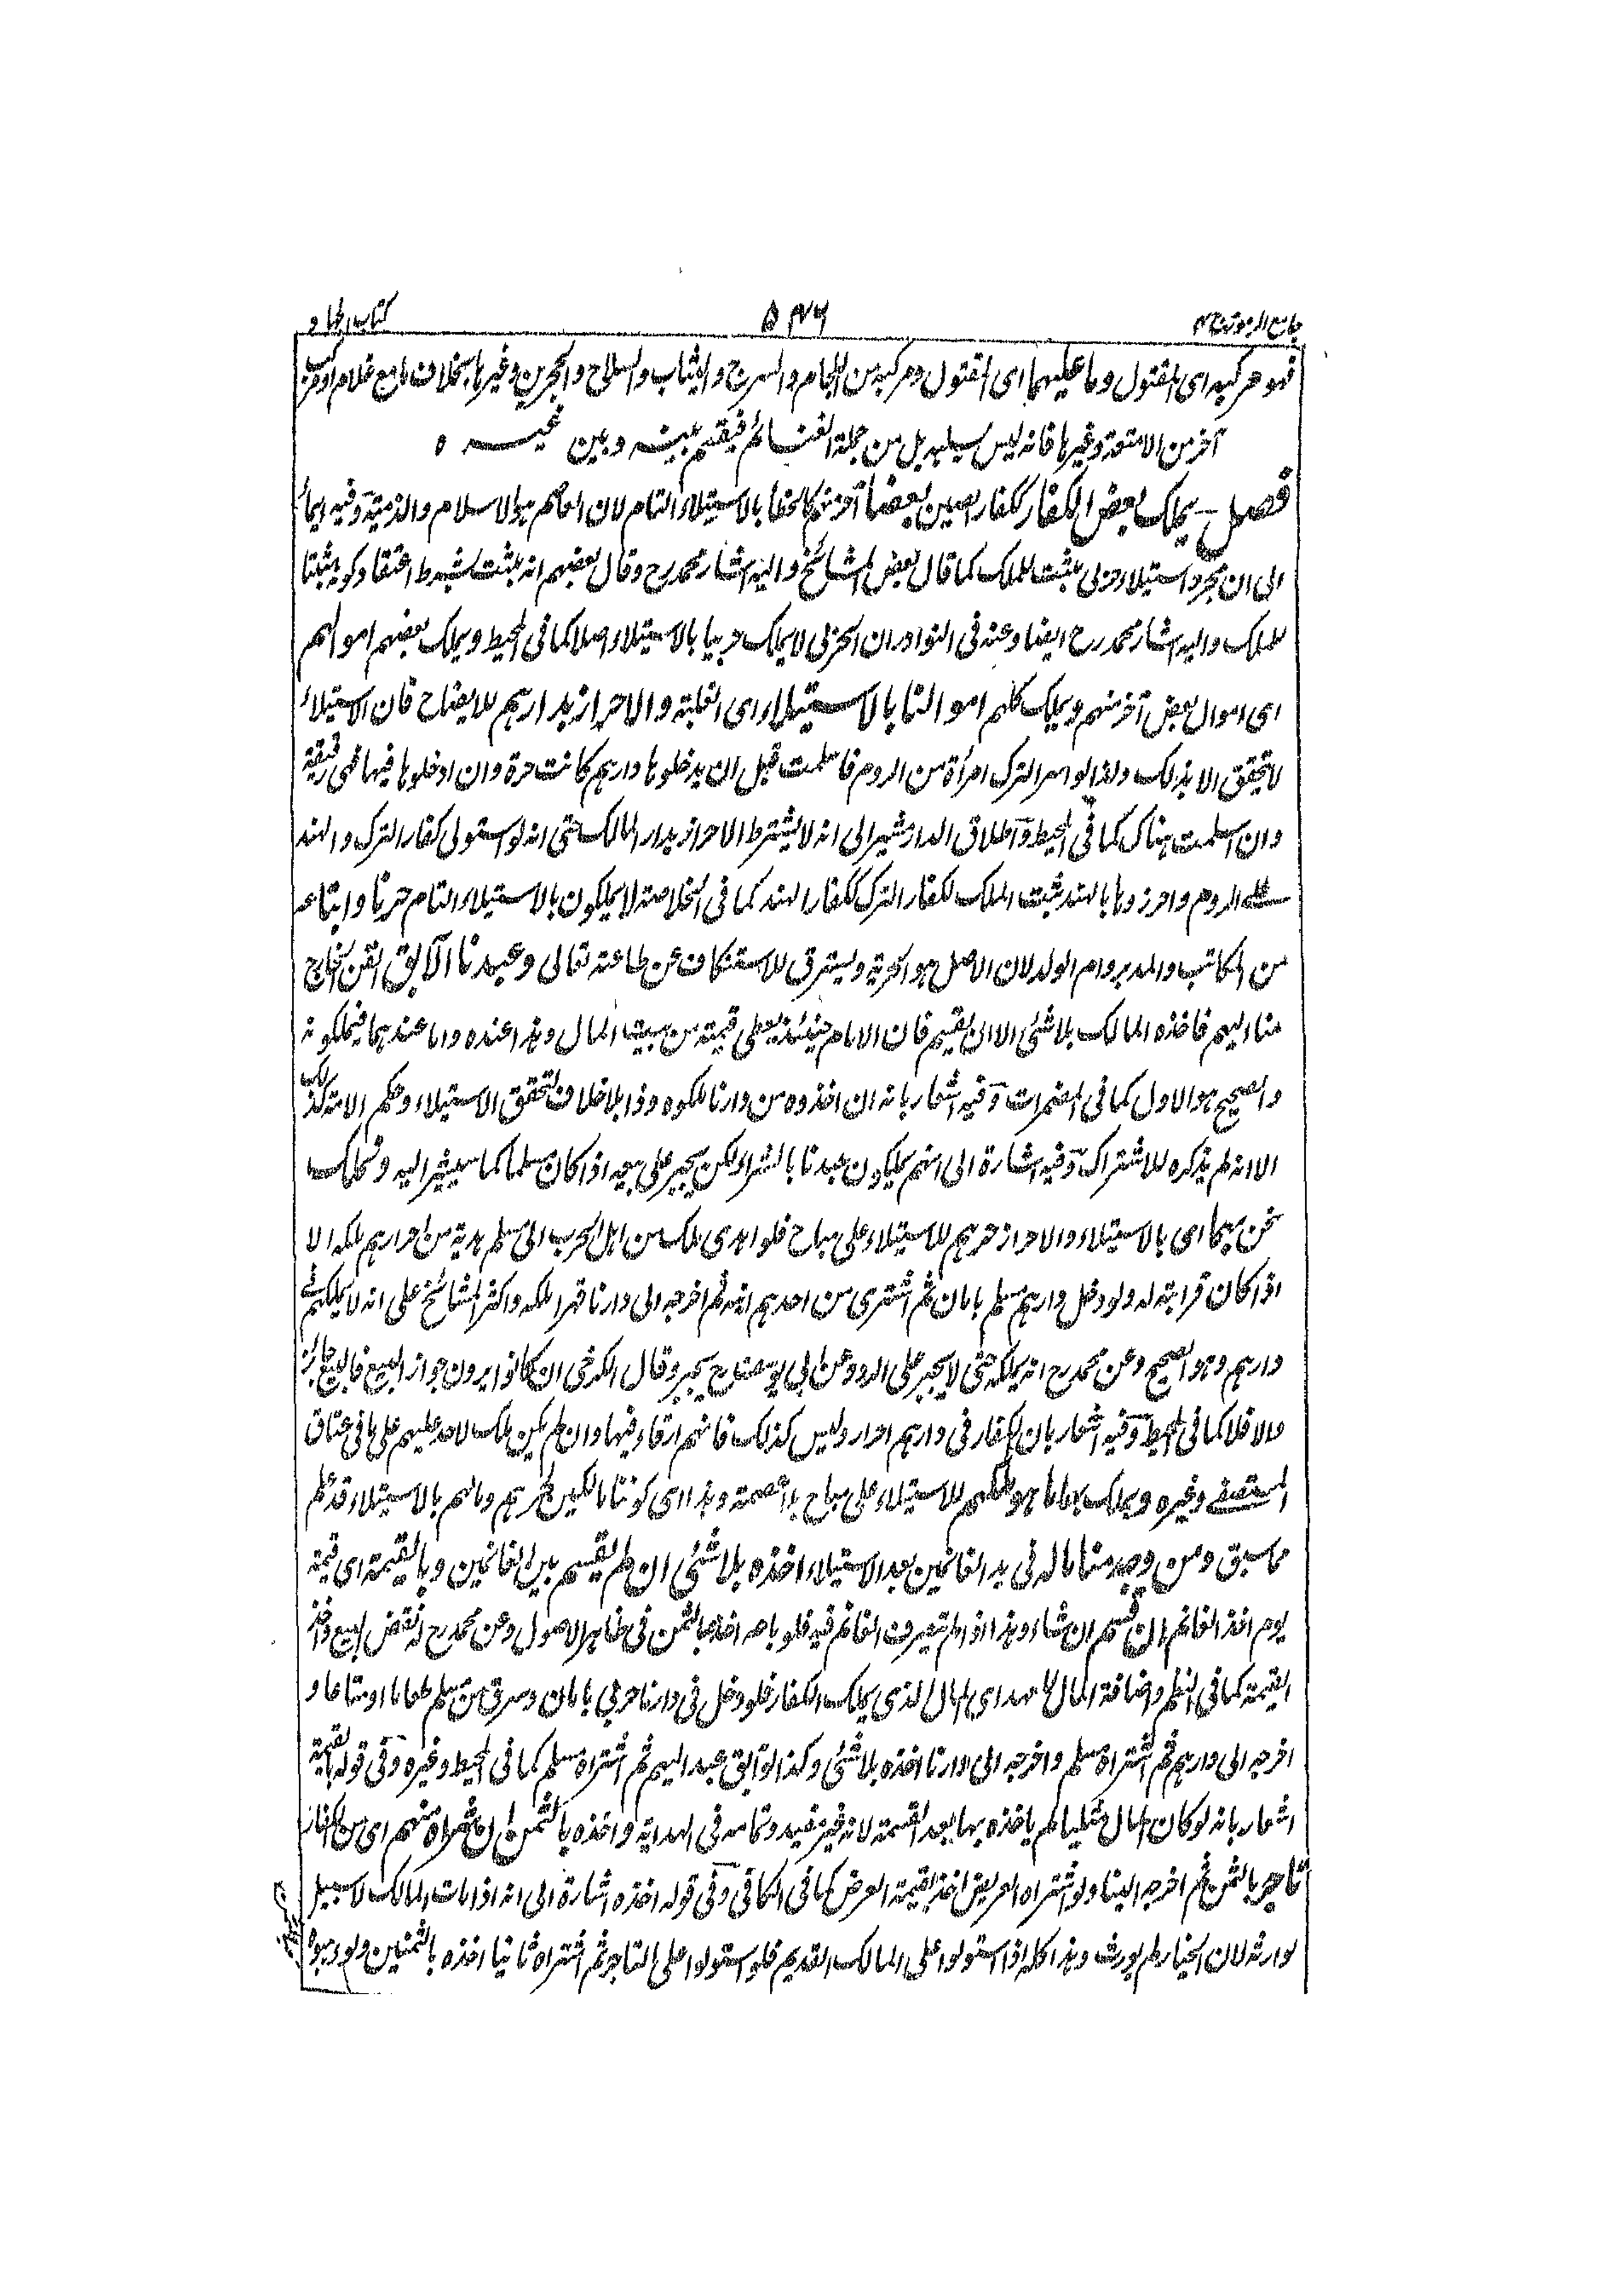 جامع الرموز ج ٢ ٥٣٦ كتاب الجهاد
فهو مركبه اى المقتول وما عليهما اى المقتول ومركبه من اللجام والسرج والثياب والسلاح والحجرين وغيرها بخلاف ما مع غلام او مركب
آخر من الامتعة وغيرها فانه ليس بسلبه بل من جملة الغنائم فيقسم بينه وبين غيره
فصل يملك بعض الكفار ككفار الصين بعضا آخر منهم كالخطا بالاستيلاء التام لان العاصم هو الاسلام والذمية وفيه ايماء
الى ان مجرد استيلاء حربى مثبت للملك كما قال بعض المشائخ واليه اشار محمد رح وقال بعضهم انه مثبت بشرط اعتقاد كونه مثبتا
للملك واليه اشار محمد رح ايضا وعنه فى النوادر ان الحربى لا يملك حربيا بالاستيلاء اصلا كما فى المحيط ويملك بعضهم اموالهم
اى اموال بعض آخر منهم ويملك كلهم اموالنا بالاستيلاء اى الغلبة والاحراز بدارهم للايضاح فان الاستيلاء
لا يتحقق الا بذلك ولذا لو اسر الترك امرأة من الروم فاسلمت قبل ان يدخلوها دارهم كانت حرة وان ادخلوها فيها فهى رقيقة
وان اسلمت هناك كما فى المحيط وآطلاق الدار مشير الى انه لا يشترط الاحراز بدار المالك حتى انه لو استولى كفار الترك والهند
على الروم واحرزوها بالهند ثبت الملك لكفار الترك ككفار الهند كما فى الخلاصة لا يملكون بالاستيلاء التام حرنا واتباعه
من المكاتب والمدبر وام الولد لان الاصل هو الحرية ويسترق للاستنكاف عن طاعته تعالى وعبدنا الآبق القن الخارج
منا اليهم فاخذه المالك بلا شئ الا ان يقسم فان الامام حينئذ يعطى قيمته من بيت المال وهذا عنده واما عندهما فيملكونه
والصحيح هو الاول كما فى المضمرات وفيه اشعار بانه ان اخذوه من دارنا ملكوه وذا بلا خلاف لتحقق الاستيلاء وحكم الامة كذلك
الا انه لم يذكره للاشتراك وفيه اشارة الى انهم يملكون عبدنا بالشراء ولكن يجبر على بيعه اذا كان مسلما كما سيشير اليه ونملك
نحن بهما اى بالاستيلاء والاحراز حرهم للاستيلاء على مباح فلو اهدى ملك من اهل الحرب الى مسلم هدية من احرارهم ملكه الا
اذا كان قرابة له ولو دخل دارهم مسلم بامان ثم اشترى من احدهم ابنه ثم اخرجه الى دارنا قهرا ملكه واكثر المشائخ على انه لا يملكهم فى
دارهم وهو الصحيح وعن محمد رح انه يملكه حتى لا يجبر على الرد وعن ابى يوسف رح يجبر وقال الكرخى ان كانوا يرون جواز البيع فالبيع جائز
والا فلا كما فى المحيط وفيه اشعار بان الكفار فى دارهم احرار وليس كذلك فانهم ارقاء فيها وان لم يكن ملك لاحد عليهم على ما فى عتاق
المستصفى وغيره ويملك بهما ما هو ملكهم للاستيلاء على مباح بلا عصمة وهذا اى كوننا مالكين لحرهم ومالهم بالاستيلاء قد علم
مما سبق ومن وجد منا ماله فى يد الغانمين بعد الاستيلاء اخذه بلا شئ ان لم يقسم بين الغانمين وبالقيمة اى قيمة
يوم اخذ الغانم ان قسم ان شاء وهذا اذا لم يتصرف الغانم فيه فلو باعه اخذها بالثمن فى ظاهر الاصول وعن محمد رح له نقض البيع واخذ
القيمة كما فى النظم واضافة المال للعهد اى المال الذى يملك الكفار فلو دخل فى دارنا حربى بامان وسرق من مسلم طعاما او متاعا و
اخرجه الى دارهم ثم اشتراه مسلم واخرجه الى دارنا اخذه بلا شئ وكذا لو ابق عبد اليهم ثم اشتراه مسلم كما فى المحيط وغيره وفى قوله بالقيمة
اشعار بانه لو كان المال مثليا لم ياخذه بها بعد القسمة لانه غير مفيد وتمامه فى الهداية واخذه بالثمن ان شراه منهم اى من الكفار
تاجر بالثمن ثم اخرجه الينا ولو اشتراه بالعرض اخذ بقيمة العرض كما فى الكافى وفى قوله اخذه اشارة الى انه اذا مات المالك لا سبيل
لوارثه لان الخيار لم يورث وهذا كله اذا استولوا على المالك القديم فلو استولوا على التاجر ثم اشتراه ثانيا اخذه بالثمنين ولو وهبوه